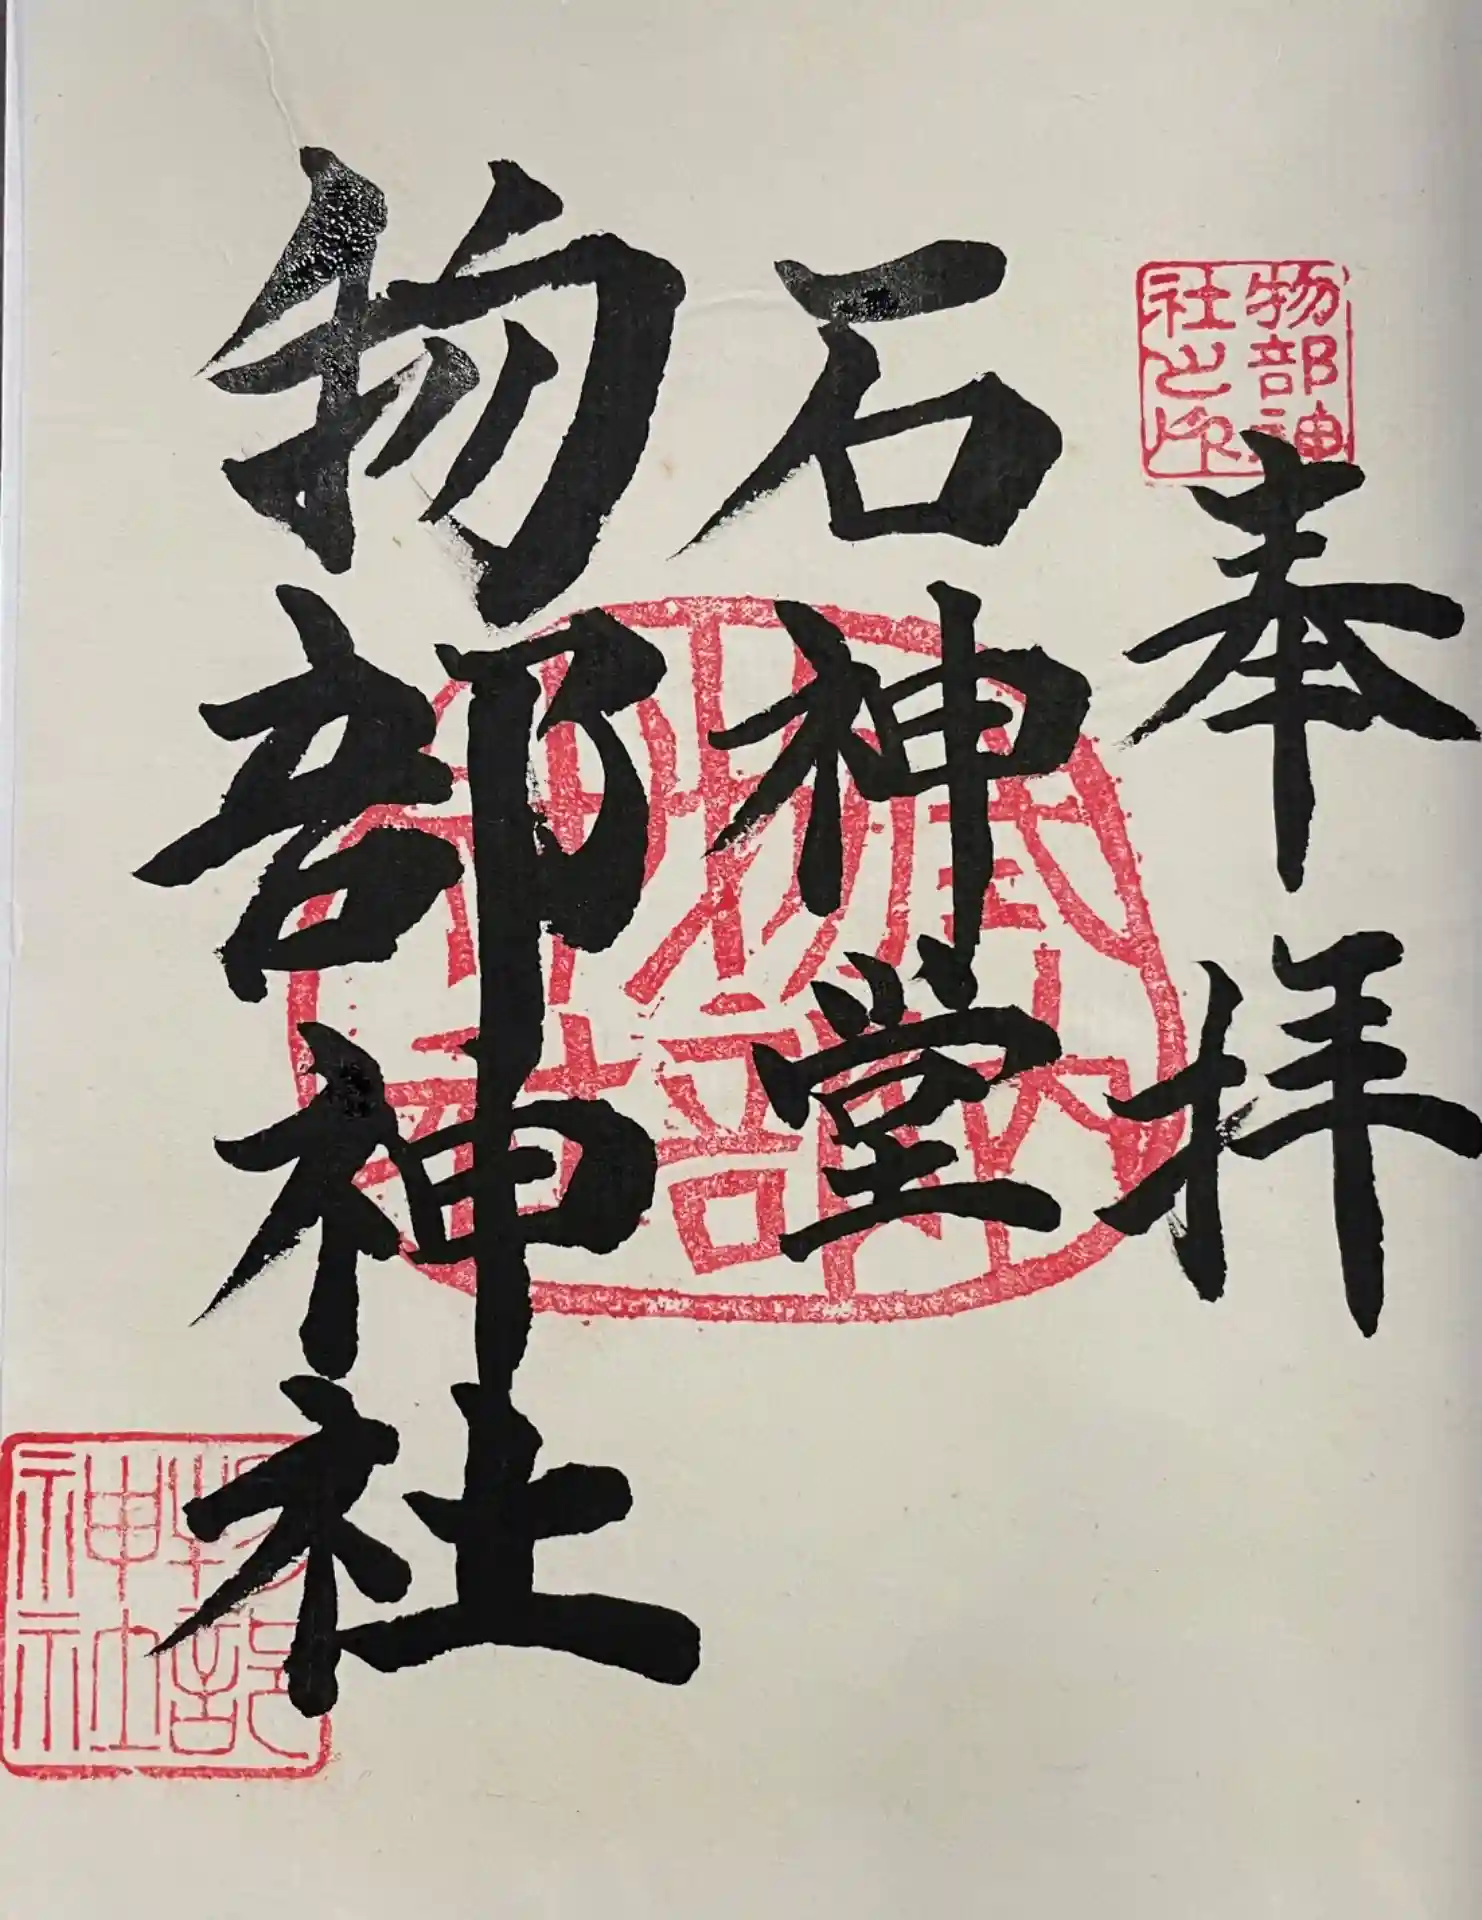 物部神
社之印
奉拝
石神堂
式内
物部
物部神社
物部
神社